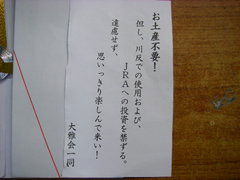 お土産不要!
但し、川反での使用および、
JRAへの投資を禁ずる。
遠慮せず、
思いっきり楽しんで来い!
大雅会一同